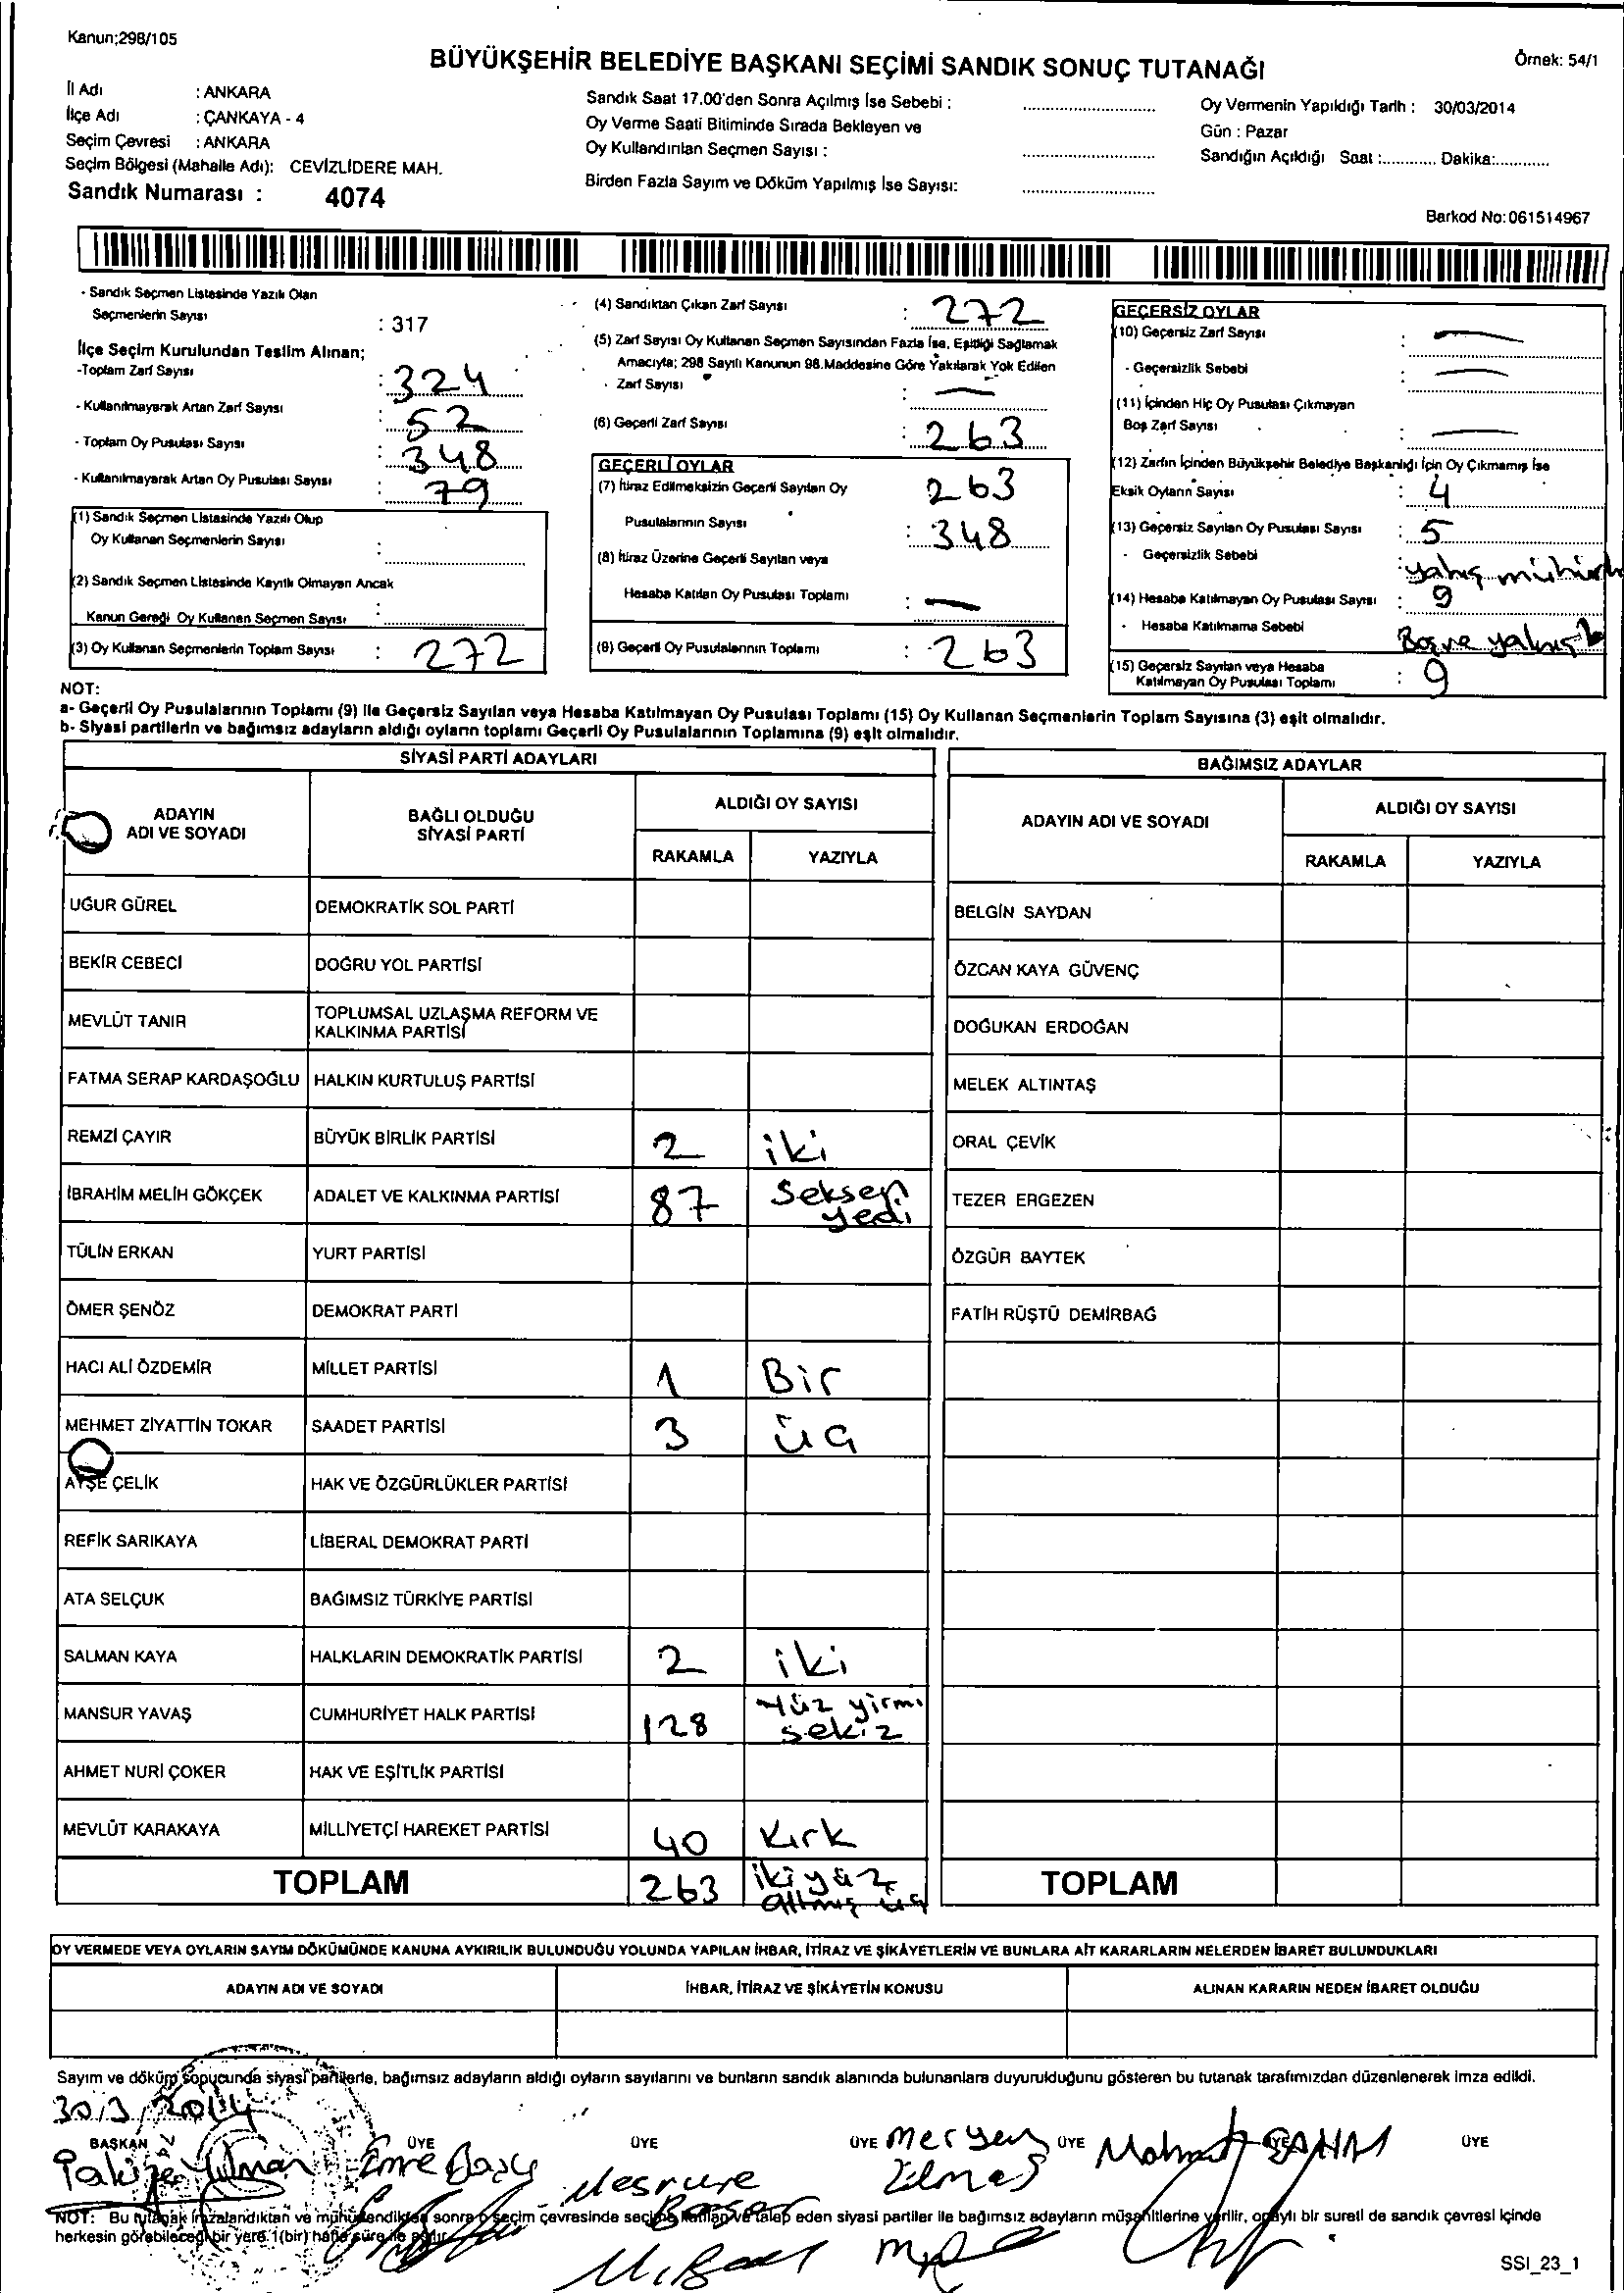 Kanun;298/105
BÜYÜKŞEHİR BELEDİYE BAŞKANI SEÇİMİ SANDIK SONUÇ TUTANAĞI
Örnek: 54/1
İl Adı : ANKARA
İlçe Adı : ÇANKAYA - 4
Seçim Çevresi : ANKARA
Seçim Bölgesi (Mahalle Adı): CEVİZLİDERE MAH.
Sandık Numarası : 4074
Sandık Saat 17.00'den Sonra Açılmış İse Sebebi :
Oy Verme Saati Bitiminde Sırada Bekleyen ve
Oy Kullandırılan Seçmen Sayısı :
Birden Fazla Sayım ve Döküm Yapılmış İse Sayısı:
Oy Vermenin Yapıldığı Tarih : 30/03/2014
Gün : Pazar
Sandığın Açıldığı Saat :............ Dakika:............
Barkod No:061514967
- Sandık Seçmen Listesinde Yazılı Olan
Seçmenlerin Sayısı : 317
İlçe Seçim Kurulundan Teslim Alınan;
-Toplam Zarf Sayısı : 324
- Kullanılmayarak Artan Zarf Sayısı : 52
- Toplam Oy Pusulası Sayısı : 348
- Kullanılmayarak Artan Oy Pusulası Sayısı : 79
(1) Sandık Seçmen Listesinde Yazılı Olup
Oy Kullanan Seçmenlerin Sayısı :
(2) Sandık Seçmen Listesinde Kayıtlı Olmayan Ancak
Kanun Gereği Oy Kullanan Seçmen Sayısı :
(3) Oy Kullanan Seçmenlerin Toplam Sayısı : 272
(4) Sandıktan Çıkan Zarf Sayısı : 272
(5) Zarf Sayısı Oy Kullanan Seçmen Sayısından Fazla İse, Eşitliği Sağlamak
Amacıyla; 298 Sayılı Kanunun 98.Maddesine Göre Yakılarak Yok Edilen
Zarf Sayısı : —
(6) Geçerli Zarf Sayısı : 263
GEÇERLİ OYLAR
(7) İtiraz Edilmeksizin Geçerli Sayılan Oy 263
Pusulalarının Sayısı : 348
(8) İtiraz Üzerine Geçerli Sayılan veya
Hesaba Katılan Oy Pusulası Toplamı : —
(9) Geçerli Oy Pusulalarının Toplamı : 263
GEÇERSİZ OYLAR
(10) Geçersiz Zarf Sayısı : —
- Geçersizlik Sebebi : —
(11) İçinden Hiç Oy Pusulası Çıkmayan
Boş Zarf Sayısı : —
(12) Zarfın İçinden Büyükşehir Belediye Başkanlığı İçin Oy Çıkmamış İse
Eksik Oyların Sayısı : 4
(13) Geçersiz Sayılan Oy Pusulası Sayısı : 5
- Geçersizlik Sebebi :
(14) Hesaba Katılmayan Oy Pusulası Sayısı : 9
- Hesaba Katılmama Sebebi Boş ve
(15) Geçersiz Sayılan veya Hesaba
Katılmayan Oy Pusulası Toplamı : 9
NOT:
a- Geçerli Oy Pusulalarının Toplamı (9) İle Geçersiz Sayılan veya Hesaba Katılmayan Oy Pusulası Toplamı (15) Oy Kullanan Seçmenlerin Toplam Sayısına (3) eşit olmalıdır.
b- Siyasi partilerin ve bağımsız adayların aldığı oyların toplamı Geçerli Oy Pusulalarının Toplamına (9) eşit olmalıdır.
SİYASİ PARTİ ADAYLARI
ADAYIN ADI VE SOYADI BAĞLI OLDUĞU SİYASİ PARTİ ALDIĞI OY SAYISI
RAKAMLA YAZIYLA
UĞUR GÜREL DEMOKRATİK SOL PARTİ
BEKİR CEBECİ DOĞRU YOL PARTİSİ
MEVLÜT TANIR TOPLUMSAL UZLAŞMA REFORM VE KALKINMA PARTİSİ
FATMA SERAP KARDAŞOĞLU HALKIN KURTULUŞ PARTİSİ
REMZİ ÇAYIR BÜYÜK BİRLİK PARTİSİ 2 iki
İBRAHİM MELİH GÖKÇEK ADALET VE KALKINMA PARTİSİ 87 Seksen yedi
TÜLİN ERKAN YURT PARTİSİ
ÖMER ŞENÖZ DEMOKRAT PARTİ
HACI ALİ ÖZDEMİR MİLLET PARTİSİ 1 Bir
MEHMET ZİYATTİN TOKAR SAADET PARTİSİ 3 üç
AYŞE ÇELİK HAK VE ÖZGÜRLÜKLER PARTİSİ
REFİK SARIKAYA LİBERAL DEMOKRAT PARTİ
ATA SELÇUK BAĞIMSIZ TÜRKİYE PARTİSİ
SALMAN KAYA HALKLARIN DEMOKRATİK PARTİSİ 2 iki
MANSUR YAVAŞ CUMHURİYET HALK PARTİSİ 128 Yüz yirmi sekiz
AHMET NURİ ÇOKER HAK VE EŞİTLİK PARTİSİ
MEVLÜT KARAKAYA MİLLİYETÇİ HAREKET PARTİSİ 40 Kırk
TOPLAM 263 iki yüz altmış üç
BAĞIMSIZ ADAYLAR
ADAYIN ADI VE SOYADI ALDIĞI OY SAYISI
RAKAMLA YAZIYLA
BELGİN SAYDAN
ÖZCAN KAYA GÜVENÇ
DOĞUKAN ERDOĞAN
MELEK ALTINTAŞ
ORAL ÇEVİK
TEZER ERGEZEN
ÖZGÜR BAYTEK
FATİH RÜŞTÜ DEMİRBAĞ
TOPLAM
OY VERMEDE VEYA OYLARIN SAYIM DÖKÜMÜNDE KANUNA AYKIRILIK BULUNDUĞU YOLUNDA YAPILAN İHBAR, İTİRAZ VE ŞİKÂYETLERİN VE BUNLARA AİT KARARLARIN NELERDEN İBARET BULUNDUKLARI
ADAYIN ADI VE SOYADI İHBAR, İTİRAZ VE ŞİKÂYETİN KONUSU ALINAN KARARIN NEDEN İBARET OLDUĞU
Sayım ve döküm sonucunda siyasi partilerle, bağımsız adayların aldığı oyların sayılarını ve bunların sandık alanında bulunanlara duyurulduğunu gösteren bu tutanak tarafımızdan düzenlenerek imza edildi.
30/3/2014
BAŞKAN ÜYE ÜYE ÜYE ÜYE ÜYE
Emre Meryem Mahmut
NOT: Bu tutanak imzalandıktan ve mühürlendikten sonra o seçim çevresinde seçime katılan ve talep eden siyasi partiler ile bağımsız adayların müşahitlerine verilir, onaylı bir sureti de sandık çevresi içinde
herkesin görebileceği bir yere 1(bir) hafta süre ile asılır.
SSI_23_1